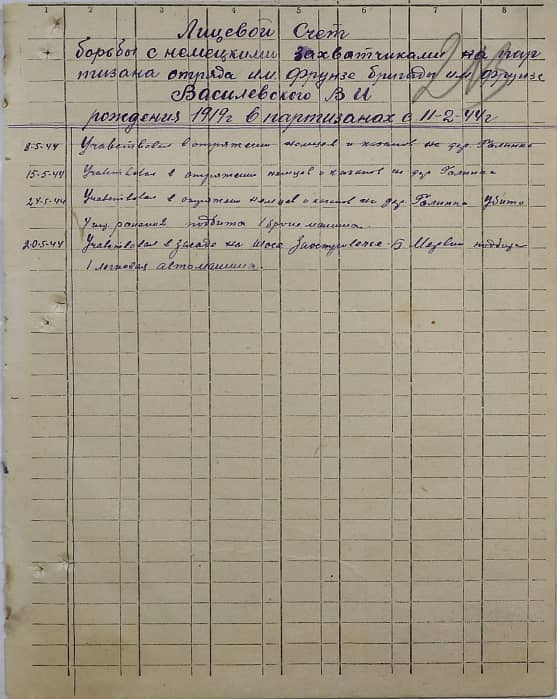 1 2 3 4 5 6 7 8
Лицевой Счет
борьбы с немецкими захватчиками на пар
тизана отряда им. Фрунзе бригады им. Фрунзе
Василевского В И
рождения 1919г в партизанах с 11-2-44г
8-5-44 Учавствовал в отряжении немцев и казаков на дер. Галинка
15-5-44 Учавствовал в отряжении немцев и казаков на дер. Галинка
24-5-44 Учавствовал в отряжении немцев и казаков на дер. Галинка Убито
ранено подбита 1 броне машина.
20-5-44 Учавствовал в засаде на шосе
1 легковая автомашина.